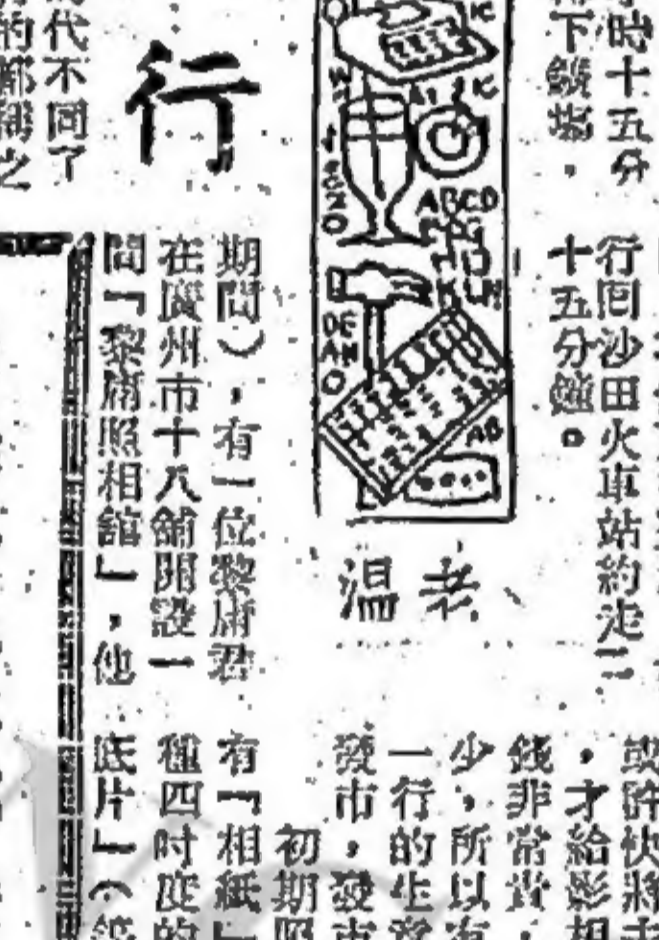 時十五分
下饑塲，
行囘沙田火車站約走二
十五分鐘。
行
代不同了
老溫
ABCD
AB
期間），有一位黎庸君
在廣州市十八鋪開設一
間「黎庸照相舘」，他
或許快將
，才給影相
錢非常貴，
少，所以
一行的生意
發市，發市
初期照
有「相紙」
種四吋度的
底片」（